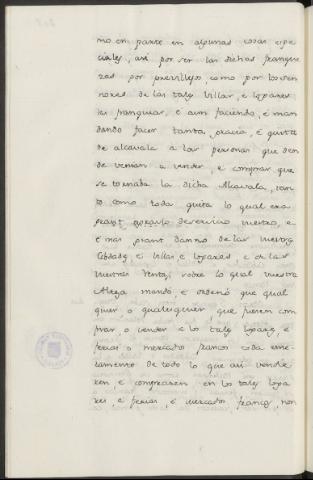 mo en parte en algunas cosas espe
ciales, asi por ser las dichas franque
zas por previllejos, como por los sen
nores de las tales Villas, é logares
las franquear, e aun faciendo, é man
dando facer tanta gracia, é quita
de alcavala a las personas que den
de venian a vender, e comprar que
se tornaba la dicha Alcavala, tan
to como toda quita lo qual era
grant deservicio vuestro, e
é mas grant damno de las vuestras
Cibdades é Villas é logares, e de las
vuestras rentas, sobre lo qual vuestra
Alteza mandó, é ordenó que qual
quier o qualesquier que fuesen com
prar, o vender e los tales logares, é
ferias o mercados francos toda ente
ramente de todo lo que asi vendie
ren, é compraren en los tales loga
res, é ferias, é mercados francos, non